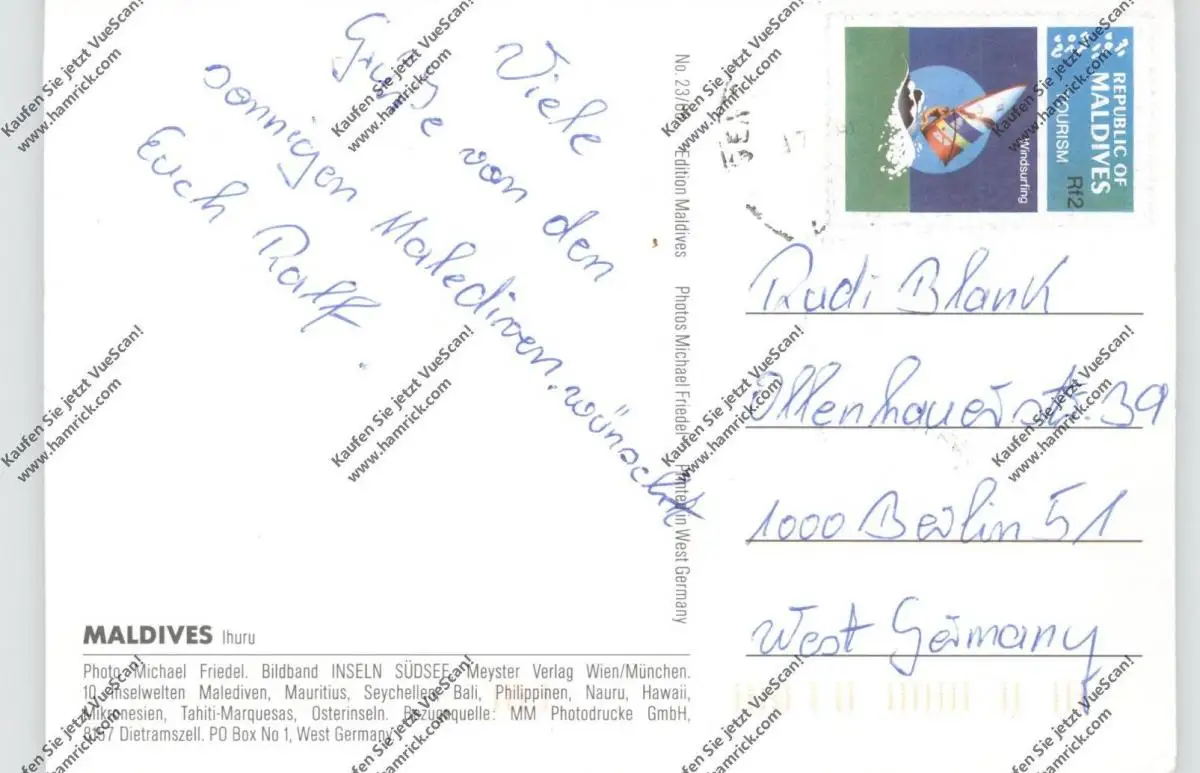 Viele
Grüße von den
sonnigen Malediven. wünscht
Euch Ralf.
No. 23/8 Edition Maldives Photos Michael Friedel Printed in West Germany
REPUBLIC OF
MALDIVES
TOURISM
Rf2
Windsurfing
Rudi Blank
Ollenhauerstr. 39
1000 Berlin 51
West Germany
MALDIVES Ihuru
Photo Michael Friedel. Bildband INSELN SÜDSEE, Meyster Verlag Wien/München.
10 Inselwelten Malediven, Mauritius, Seychellen, Bali, Philippinen, Nauru, Hawaii,
Mikronesien, Tahiti-Marquesas, Osterinseln. Bezugsquelle: MM Photodrucke GmbH,
8157 Dietramszell. PO Box No 1, West Germany
Kaufen Sie jetzt VueScan!
www.hamrick.com